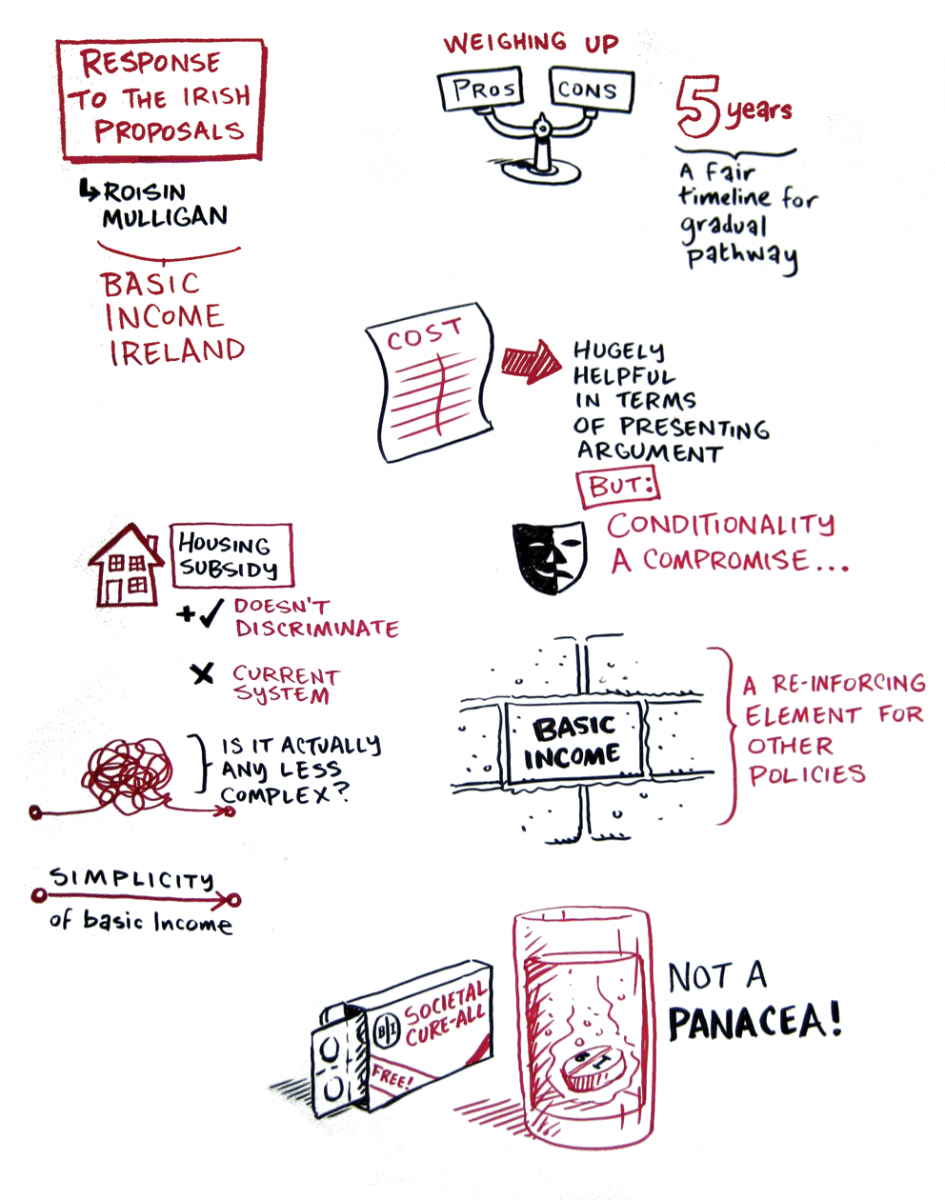 RESPONSE
TO THE IRISH
PROPOSALS
ROISIN
MULLIGAN
BASIC
INCOME
IRELAND
WEIGHING UP
PROS
CONS
5 years
A fair
timeline for
gradual
pathway
COST
HUGELY
HELPFUL
IN TERMS
OF PRESENTING
ARGUMENT
BUT:
CONDITIONALITY
A COMPROMISE...
HOUSING
SUBSIDY
+✓ DOESN'T
DISCRIMINATE
X CURRENT
SYSTEM
IS IT ACTUALLY
ANY LESS
COMPLEX?
SIMPLICITY
of basic Income
BASIC
INCOME
A RE-INFORCING
ELEMENT FOR
OTHER
POLICIES
B I
SOCIETAL
CURE-ALL
FREE!
B I
NOT A
PANACEA!